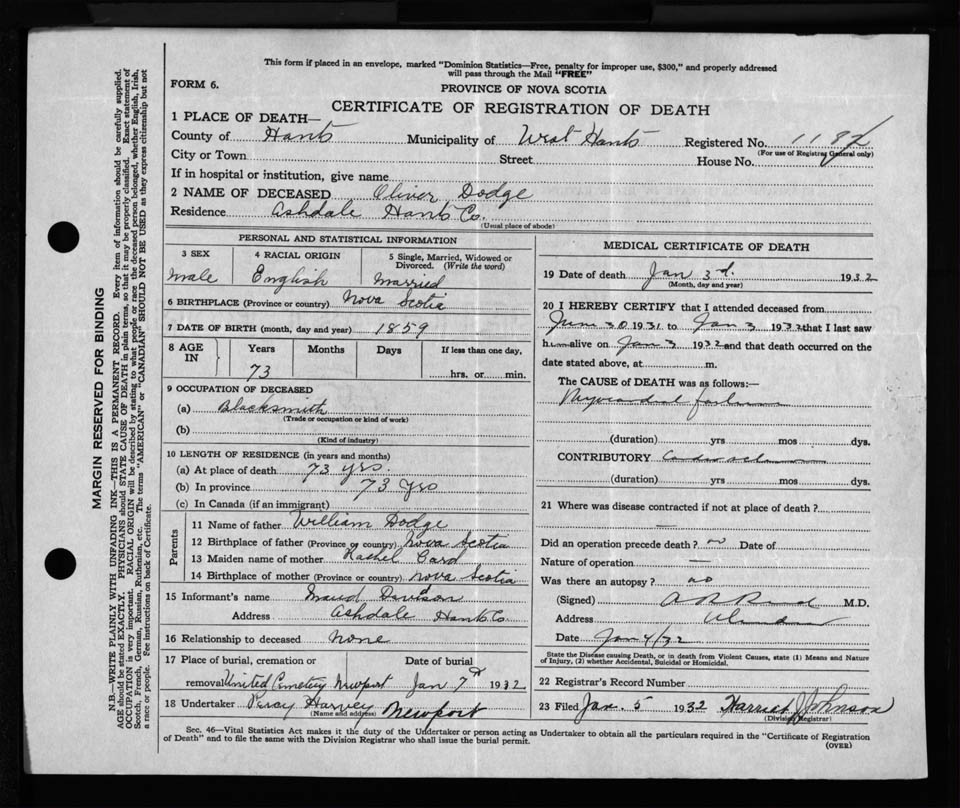 This form if placed in an envelope, marked "Dominion Statistics—Free, penalty for improper use, $300," and properly addressed
will pass through the Mail "FREE"
FORM 6.
PROVINCE OF NOVA SCOTIA
CERTIFICATE OF REGISTRATION OF DEATH
1 PLACE OF DEATH—
County of Hants Municipality of West Hants Registered No. 1182
(For use of Registrar General only)
City or Town Street House No.
If in hospital or institution, give name
2 NAME OF DECEASED Oliver Dodge
Residence Ashdale Hants Co.
(Usual place of abode)
PERSONAL AND STATISTICAL INFORMATION
3 SEX 4 RACIAL ORIGIN 5 Single, Married, Widowed or
Divorced. (Write the word)
Male English Married
6 BIRTHPLACE (Province or country) Nova Scotia
7 DATE OF BIRTH (month, day and year) 1859
8 AGE IN Years Months Days If less than one day,
73 hrs. or min.
9 OCCUPATION OF DECEASED
(a) Blacksmith
(Trade or occupation or kind of work)
(b)
(Kind of industry)
10 LENGTH OF RESIDENCE (in years and months)
(a) At place of death 73 yrs.
(b) In province 73 Yrs
(c) In Canada (if an immigrant)
Parents
11 Name of father William Dodge
12 Birthplace of father (Province or country) Nova Scotia
13 Maiden name of mother Rachel Card
14 Birthplace of mother (Province or country) Nova Scotia
15 Informant's name Maud Davidson
Address Ashdale Hants Co.
16 Relationship to deceased None
17 Place of burial, cremation or Date of burial
removal United Cemetery Newport Jan 7th 1932
18 Undertaker Percy Harvey Newport
(Name and address)
MEDICAL CERTIFICATE OF DEATH
19 Date of death Jan 3d. 1932
(Month, day and year)
20 I HEREBY CERTIFY that I attended deceased from
June 30 1931 to Jan 3 1932 that I last saw
him alive on Jan 3 1932 and that death occurred on the
date stated above, at m.
The CAUSE of DEATH was as follows:—
Myocardial failure
(duration) yrs mos dys.
CONTRIBUTORY
(duration) yrs mos dys.
21 Where was disease contracted if not at place of death?
—
Did an operation precede death? no Date of
Nature of operation —
Was there an autopsy? no
(Signed) M.D.
Address
Date Jan 4/32
State the Disease causing Death, or in death from Violent Causes, state (1) Means and Nature
of Injury, (2) whether Accidental, Suicidal or Homicidal.
22 Registrar's Record Number
23 Filed Jan. 5 1932 Harriet J Johnson
(Division Registrar)
Sec. 46—Vital Statistics Act makes it the duty of the Undertaker or person acting as Undertaker to obtain all the particulars required in the "Certificate of Registration
of Death" and to file the same with the Division Registrar who shall issue the burial permit.
(OVER)
MARGIN RESERVED FOR BINDING
N.B.—WRITE PLAINLY WITH UNFADING INK—THIS IS A PERMANENT RECORD. Every item of information should be carefully supplied.
AGE should be stated EXACTLY. PHYSICIANS should STATE CAUSE OF DEATH in plain terms, so that it may be properly classified. Exact statement of
OCCUPATION is very important. RACIAL ORIGIN will be described by stating to what people or race the deceased person belonged, whether English, Irish,
Scotch, French, German, Russian, Ruthenian, etc. The terms "AMERICAN" or "CANADIAN" SHOULD NOT BE USED as they express citizenship but not
a race or people. See instructions on back of Certificate.